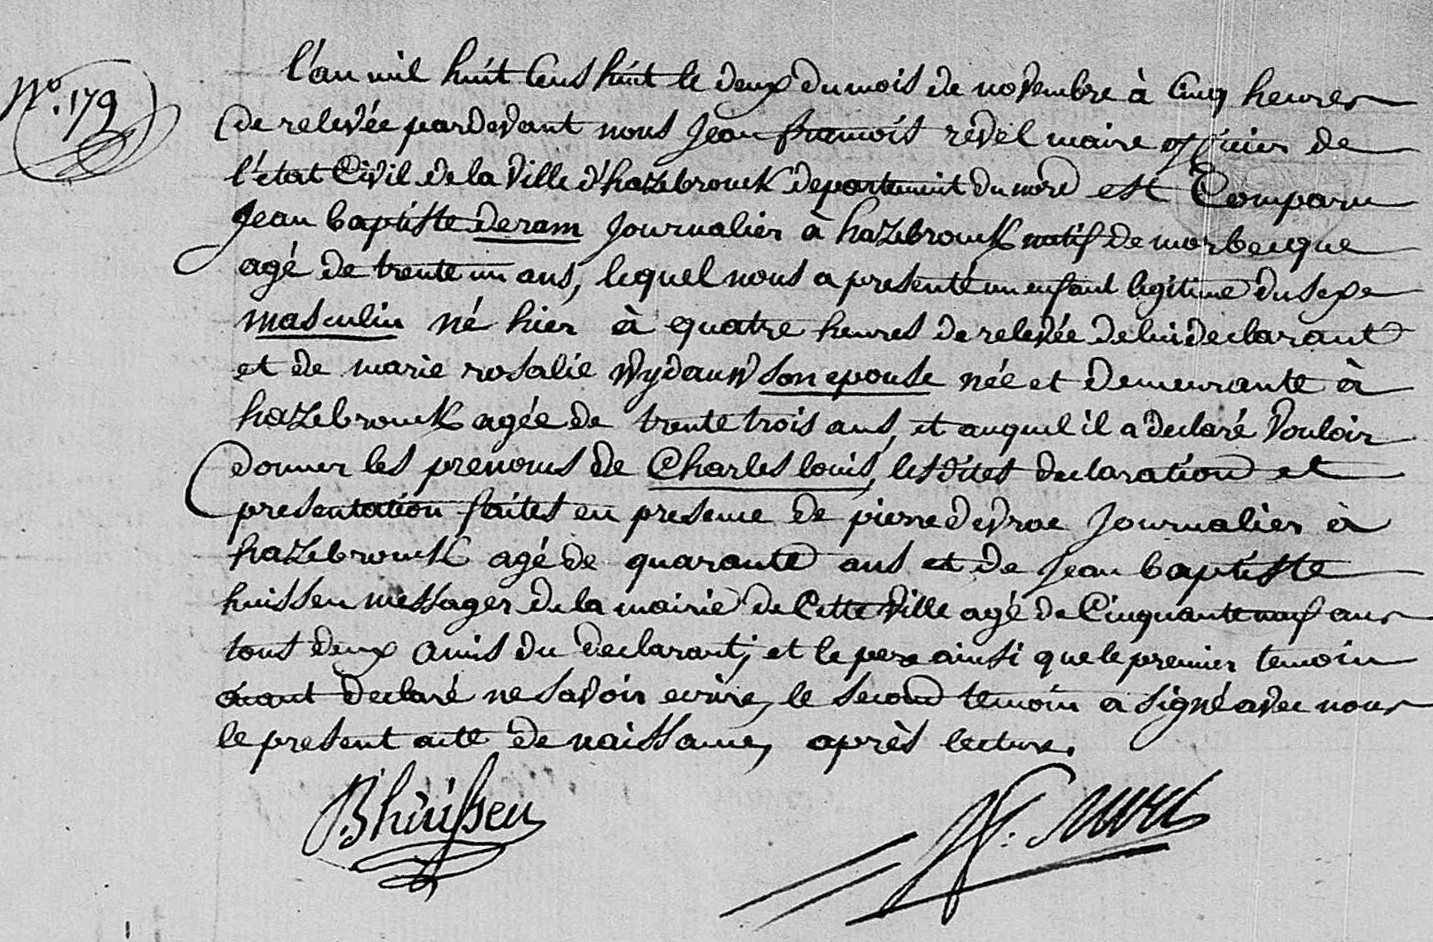 N.º 179
l'an mil huit Cens huit le deux du mois de novembre à Cinq heures
de relevée pardevant nous Jean francois revel maire officier de
l'état Civil de la Ville d'hazebrouck departement du nord est Comparu
Jean baptiste deram Journalier à hazebrouck natif de morbecque
agé de trente un ans, lequel nous a presenté un enfant legitime du sexe
masculin né hier à quatre heures de relevée de lui declarant
et de marie rosalie Wydauw son epouse née et demeurante à
hazebrouck agée de trente trois ans, et auquel il a declaré Vouloir
donner les prenoms de Charles louis, lesdites declaration et
presentation faites en presence de pierre devroe Journalier à
hazebrouck agé de quarante ans et de Jean baptiste
huissen messager de la mairie de Cette Ville agé de Cinquante neuf ans
tous deux amis du declarant; et le pere ainsi que le premier temoin
aiant declaré ne savoir ecrire, le second temoin a signé avec nous
le present acte de naissance, après lecture.
JB huissen